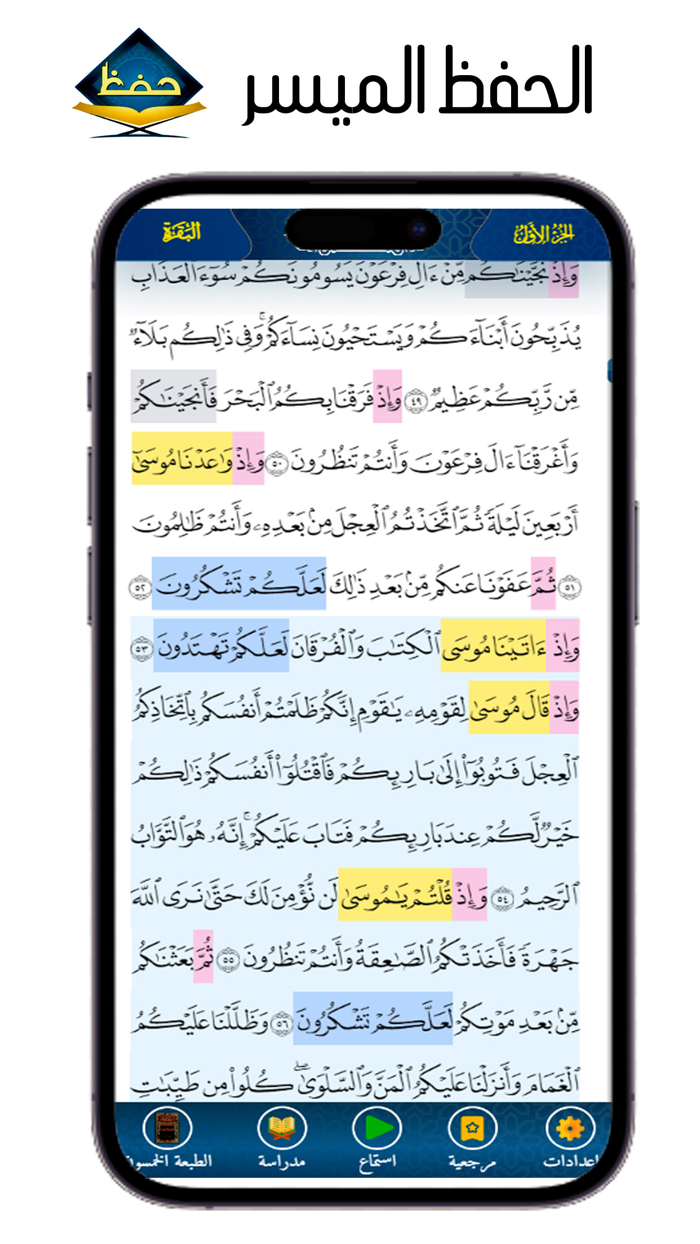 حفظ
الحفظ الميسر
الجزء الأول
البقرة
وَإِذْ نَجَّيْنَاكُم مِّنْ ءَالِ فِرْعَوْنَ يَسُومُونَكُمْ سُوٓءَ الْعَذَابِ
يُذَبِّحُونَ أَبْنَآءَكُمْ وَيَسْتَحْيُونَ نِسَآءَكُمْ ۚ وَفِى ذَٰلِكُم بَلَآءٌ
مِّن رَّبِّكُمْ عَظِيمٌ ٤٩ وَإِذْ فَرَقْنَا بِكُمُ الْبَحْرَ فَأَنجَيْنَٰكُمْ
وَأَغْرَقْنَآ ءَالَ فِرْعَوْنَ وَأَنتُمْ تَنظُرُونَ ٥٠ وَإِذْ وَٰعَدْنَا مُوسَىٰٓ
أَرْبَعِينَ لَيْلَةً ثُمَّ اتَّخَذْتُمُ الْعِجْلَ مِنۢ بَعْدِهِۦ وَأَنتُمْ ظَٰلِمُونَ
٥١ ثُمَّ عَفَوْنَا عَنكُم مِّنۢ بَعْدِ ذَٰلِكَ لَعَلَّكُمْ تَشْكُرُونَ ٥٢
وَإِذْ ءَاتَيْنَا مُوسَى الْكِتَٰبَ وَالْفُرْقَانَ لَعَلَّكُمْ تَهْتَدُونَ ٥٣
وَإِذْ قَالَ مُوسَىٰ لِقَوْمِهِۦ يَٰقَوْمِ إِنَّكُمْ ظَلَمْتُمْ أَنفُسَكُم بِاتِّخَاذِكُمُ
الْعِجْلَ فَتُوبُوٓا۟ إِلَىٰ بَارِئِكُمْ فَاقْتُلُوٓا۟ أَنفُسَكُمْ ذَٰلِكُمْ
خَيْرٌ لَّكُمْ عِندَ بَارِئِكُمْ فَتَابَ عَلَيْكُمْ ۚ إِنَّهُۥ هُوَ التَّوَّابُ
الرَّحِيمُ ٥٤ وَإِذْ قُلْتُمْ يَٰمُوسَىٰ لَن نُّؤْمِنَ لَكَ حَتَّىٰ نَرَى اللَّهَ
جَهْرَةً فَأَخَذَتْكُمُ الصَّٰعِقَةُ وَأَنتُمْ تَنظُرُونَ ٥٥ ثُمَّ بَعَثْنَٰكُم
مِّنۢ بَعْدِ مَوْتِكُمْ لَعَلَّكُمْ تَشْكُرُونَ ٥٦ وَظَلَّلْنَا عَلَيْكُمُ
الْغَمَامَ وَأَنزَلْنَا عَلَيْكُمُ الْمَنَّ وَالسَّلْوَىٰ ۖ كُلُوا۟ مِن طَيِّبَٰتِ
اعدادات
مرجعية
استماع
مدراسة
الطبعة الخمسون